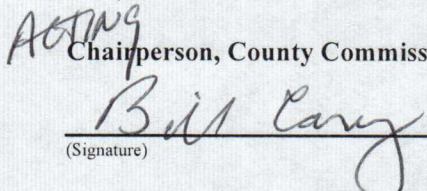 ACTING
Chairperson, County Commiss
Bill Carey
(Signature)